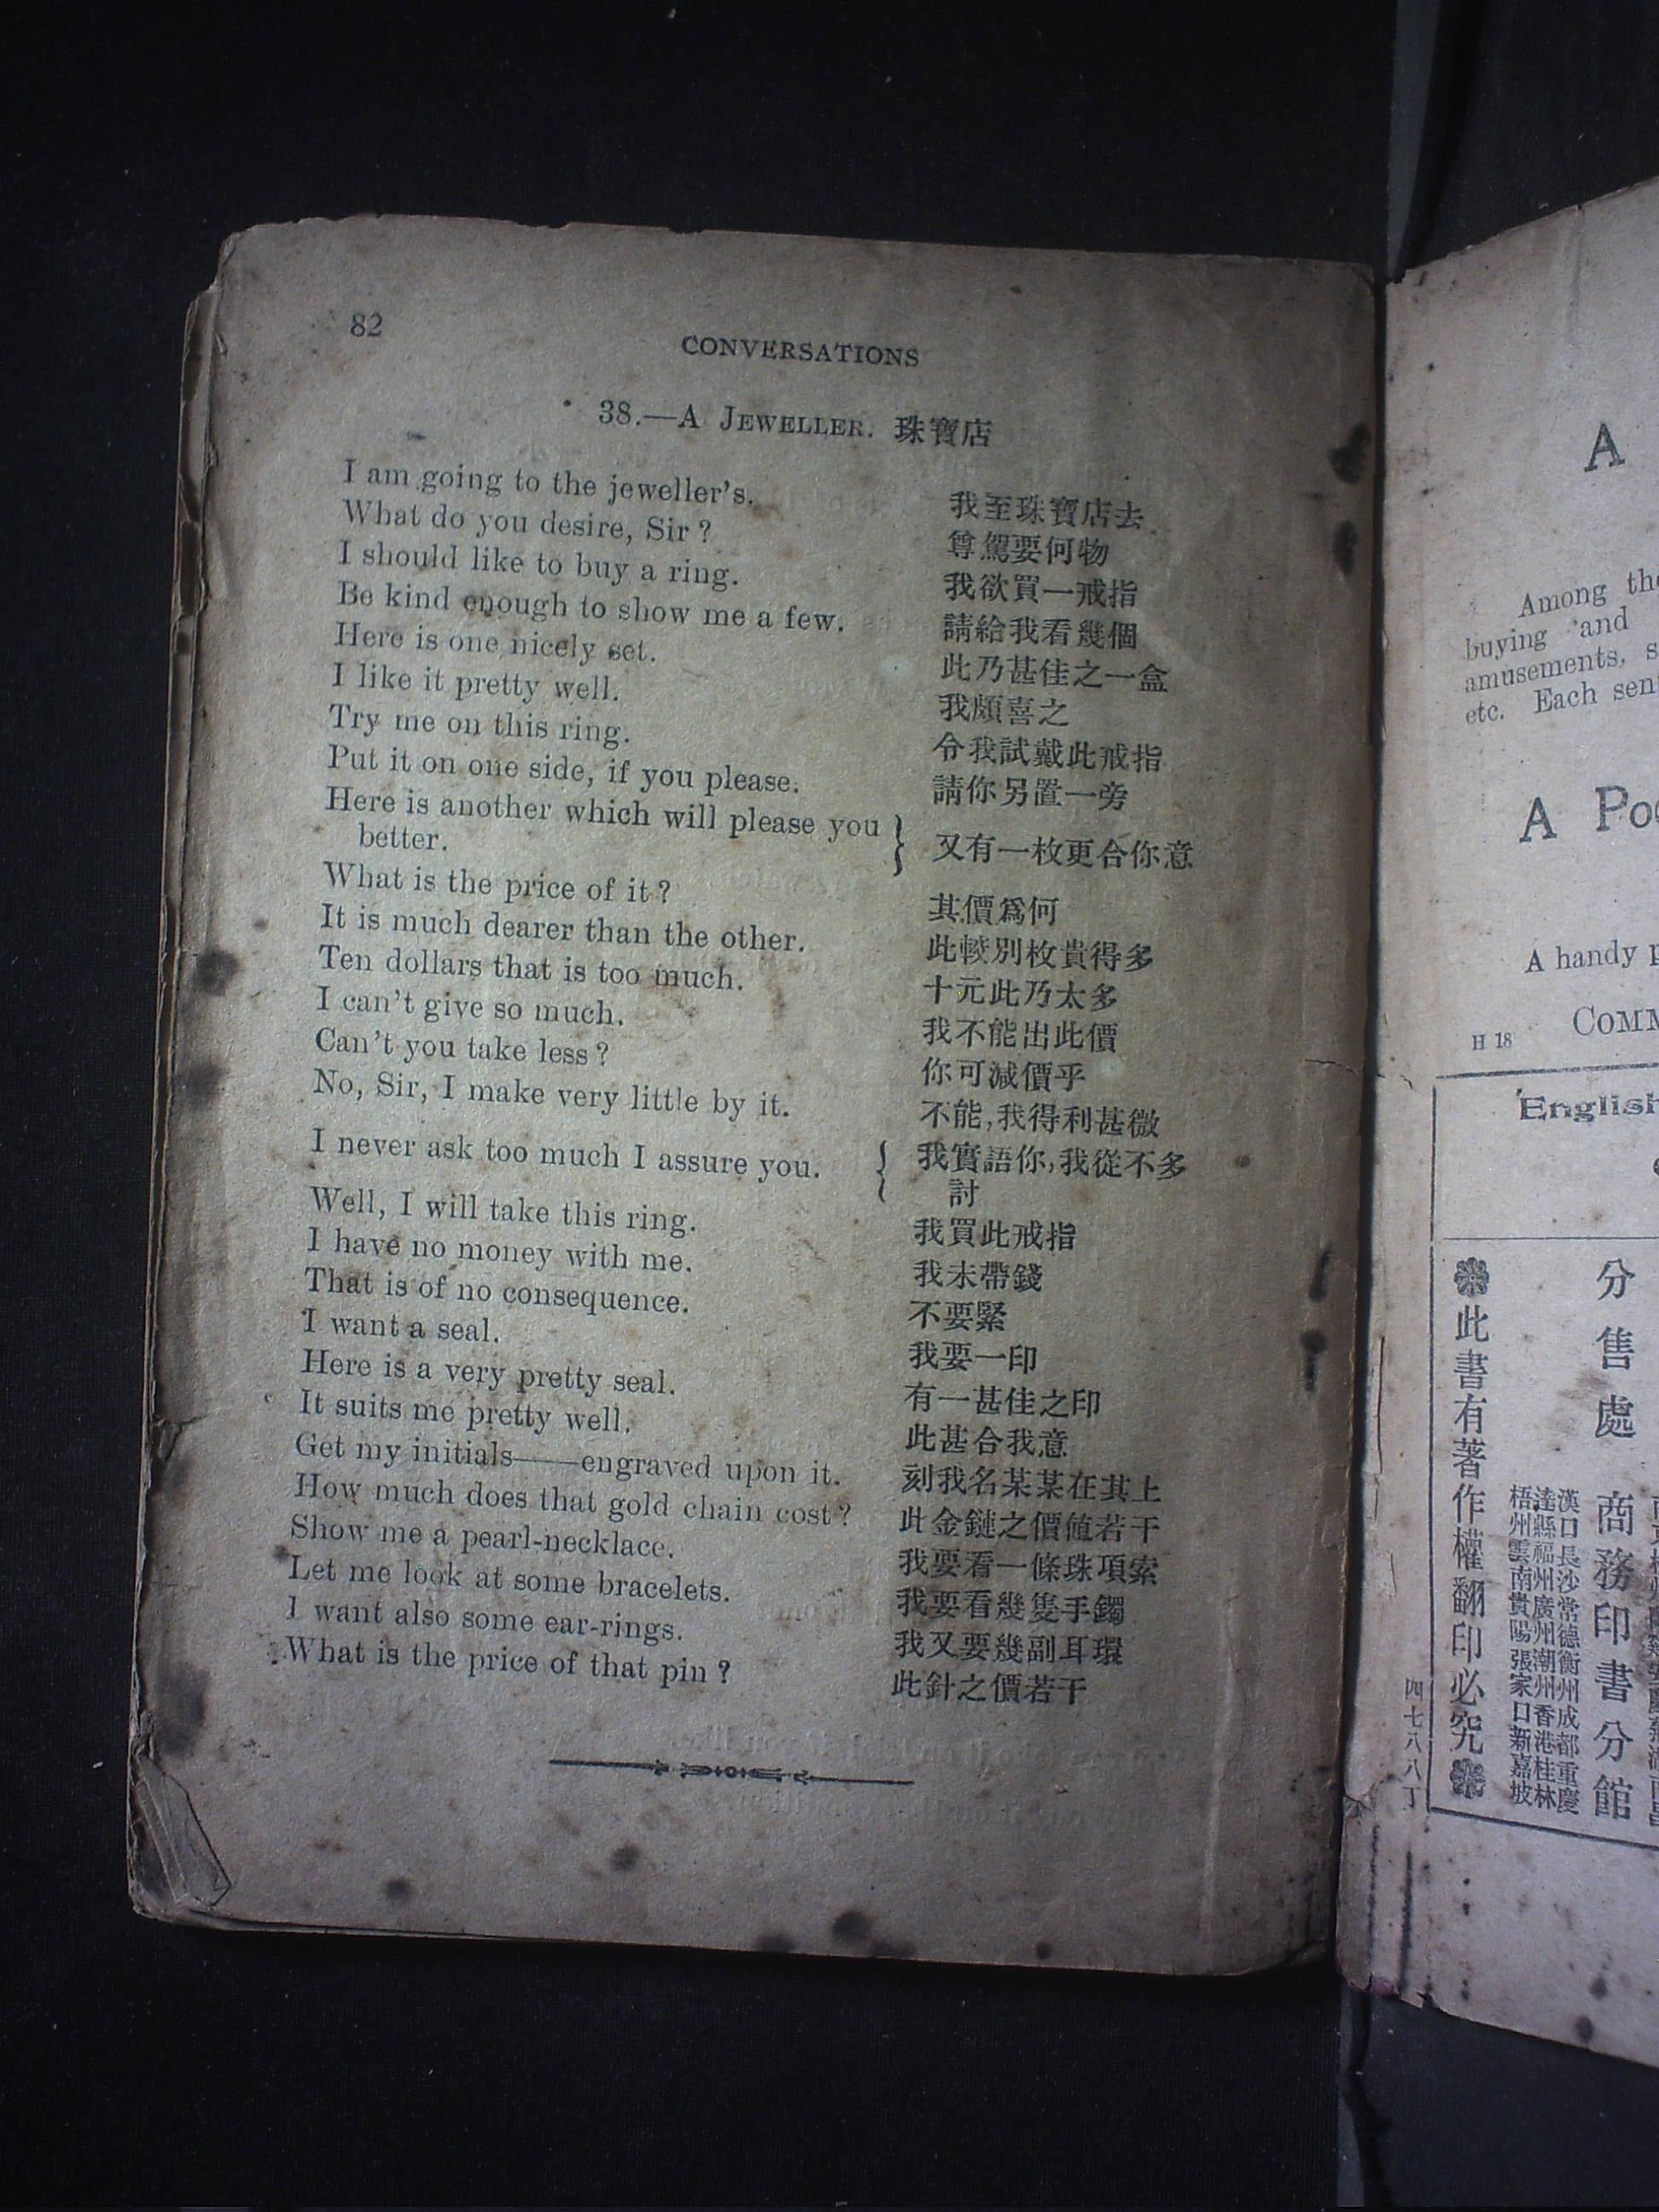 82
CONVERSATIONS
38.—A JEWELLER. 珠寶店
I am going to the jeweller's. 我至珠寶店去
What do you desire, Sir? 尊駕要何物
I should like to buy a ring. 我欲買一戒指
Be kind enough to show me a few. 請給我看幾個
Here is one nicely set. 此乃甚佳之一盒
I like it pretty well. 我頗喜之
Try me on this ring. 令我試戴此戒指
Put it on one side, if you please. 請你另置一旁
Here is another which will please you
better. } 又有一枚更合你意
What is the price of it? 其價爲何
It is much dearer than the other. 此較別枚貴得多
Ten dollars that is too much. 十元此乃太多
I can't give so much. 我不能出此價
Can't you take less? 你可減價乎
No, Sir, I make very little by it. 不能,我得利甚微
I never ask too much I assure you. { 我實語你,我從不多
討
Well, I will take this ring. 我買此戒指
I have no money with me. 我未帶錢
That is of no consequence. 不要緊
I want a seal. 我要一印
Here is a very pretty seal. 有一甚佳之印
It suits me pretty well. 此甚合我意
Get my initials——engraved upon it. 刻我名某某在其上
How much does that gold chain cost? 此金鏈之價値若干
Show me a pearl-necklace. 我要看一條珠項索
Let me look at some bracelets. 我要看幾隻手鐲
I want also some ear-rings. 我又要幾副耳環
What is the price of that pin? 此針之價若干
A
Among the
buying and
amusements, s
etc. Each sent
A Poc
A handy p
H 18 COMM
English
分售處 商務印書分館
漢口長沙常德衡州成都重慶
達縣福州廣州潮州香港桂林
梧州雲南貴陽張家口新嘉坡
此書有著作權翻印必究
四七八八丁